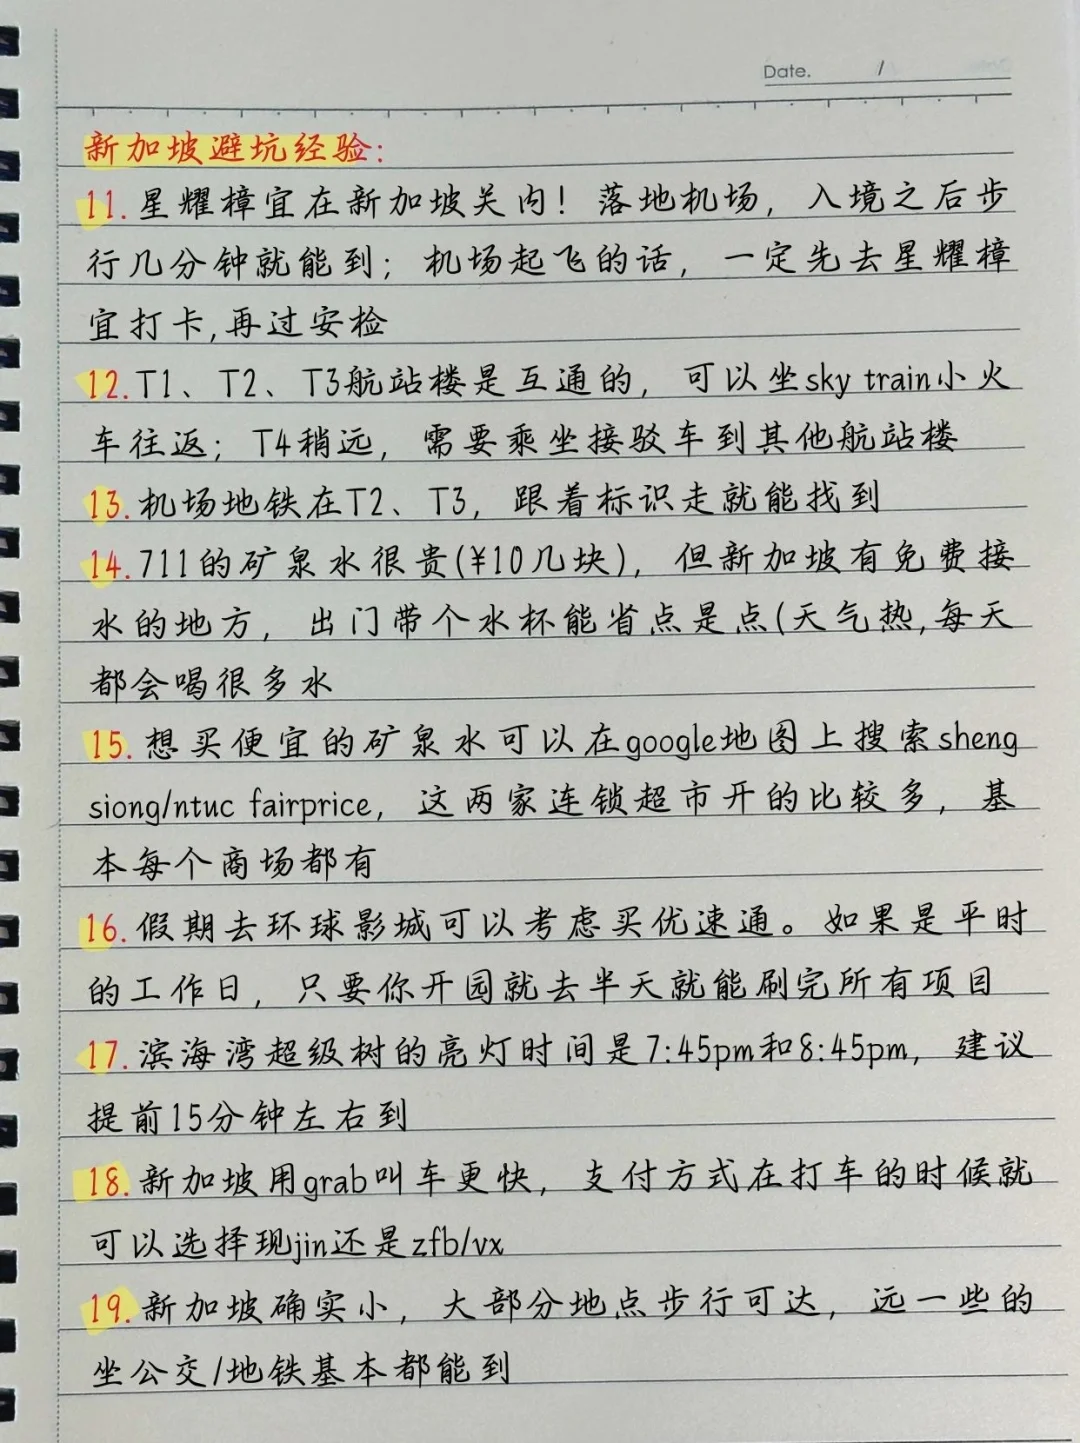 Date. /
新加坡避坑经验:
11.星耀樟宜在新加坡关内！落地机场，入境之后步
行几分钟就能到；机场起飞的话，一定先去星耀樟
宜打卡,再过安检
12.T1、T2、T3航站楼是互通的，可以坐sky train小火
车往返；T4稍远，需要乘坐接驳车到其他航站楼
13.机场地铁在T2、T3，跟着标识走就能找到
14.711的矿泉水很贵(¥10几块)，但新加坡有免费接
水的地方，出门带个水杯能省点是点(天气热,每天
都会喝很多水
15.想买便宜的矿泉水可以在google地图上搜索sheng
siong/ntuc fairprice，这两家连锁超市开的比较多，基
本每个商场都有
16.假期去环球影城可以考虑买优速通。如果是平时
的工作日，只要你开园就去半天就能刷完所有项目
17.滨海湾超级树的亮灯时间是7:45pm和8:45pm，建议
提前15分钟左右到
18.新加坡用grab叫车更快，支付方式在打车的时候就
可以选择现jin还是zfb/vx
19.新加坡确实小，大部分地点步行可达，远一些的
坐公交/地铁基本都能到